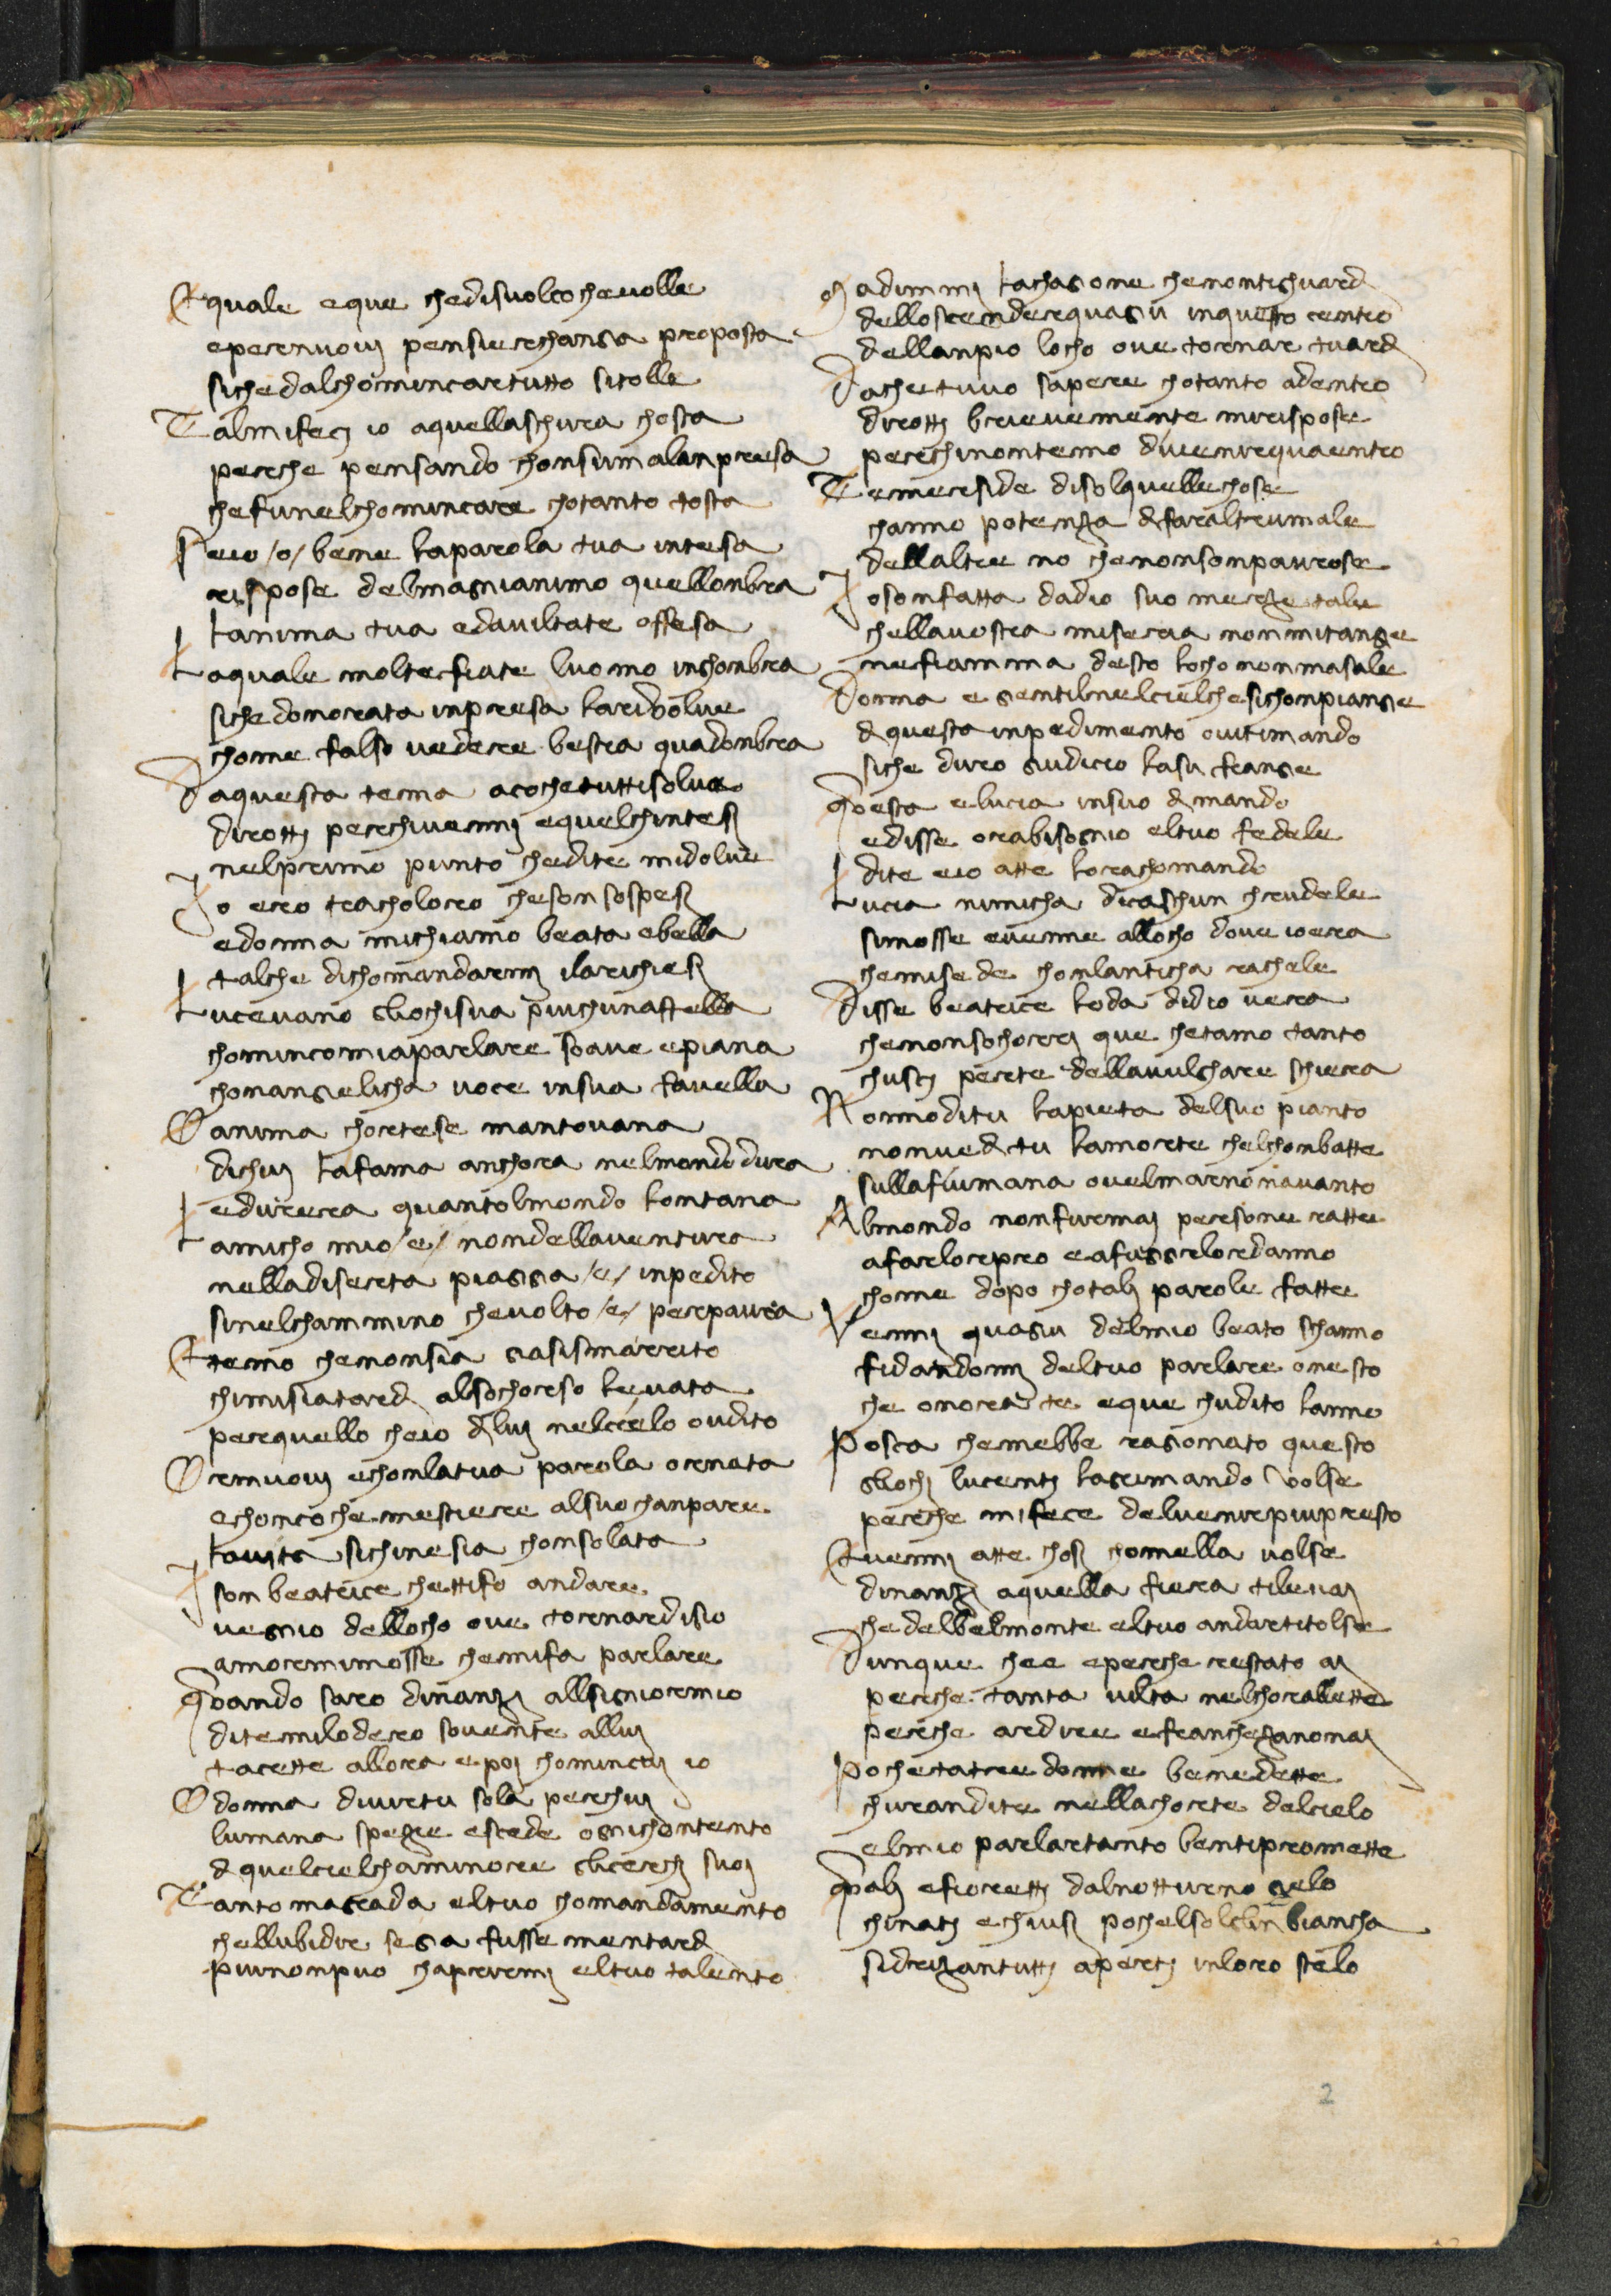 Equale eque chedisuolcochevolle
epernuovj pensierchanga proposta
sichedalchomincartutto sitolle
Talmifecj io aquellaschura chosta
perche pensando chonsumalanpresa
chefunelchominciare chotanto tosta
Seio /o/ bene laparola tua intesa
rispose delmagnianimo quellonbra
lanima tua edaviltate offesa
Laquale moltefiate luomo inghonbra
sichedonorata inpresa larivolve
chome falso vedere bestia quadonbra
Daquesta tema acochetuttisolva
dirotti perchivennj equelchintesj
nelprimo punto chedite midolve
Io ero tracholoro chesonsospesj
edonna michiamo beata ebella
talche dichomandarem ilarichiesj
Lucevano gliochisua piuchunastella
chominconmiaparlare soave epiana
chonangelicha voce insua favella
O anima chortese mantovana
dichuj lafama anchora nelmondodura
edurera quantolmondo lontana
Lamicho mio /e/ nondellaventura
nelladiserta piaggia /e/ inpedito
sinelchammino chevolto /e/ perpaura
Etemo chenonsia gasismarrito
chimisiatardj alsochorso levata
perquello cheio dlui nelcielo oudito
Ormuovj echonlatua parola ornata
echoncoche mestiere alsuochanpare
lavita sichinesia chonsolata
I son beatrice chettifo andare
vegnio dellocho ove tornardisio
amoremimosse chemifa parlare
Quando saro dinanzj allsigniormio
ditemilodero sovente alluj
tacette allora epoj chominciaj io
O donna divirtu sola perchuj
lumana spezie eccede ognichontento
d quelcielchaminore glicerchj suoj
Tanto magrada eltuo chomandamento
chellubidir sega fusse mentardj
piunonpuo chaprirmj eltuo talento
Madimmj lachagone chenontichuardj
delloscenderquagiu inquesto centro
dellanpio locho ove tornar tuardj
Dachetuvo sapere chotanto adentro
dirotti brievemente mirispose
perchinontemo divenirequaentro
Temerside disolquellechose
channo potenza dfaraltrumale
dellaltre no chenonsonpaurose
Iosonfatta dadio suo merze tale
chellavostra miseria nonmitange
nefiamma desto locho nonmasale
Donna e gentilnelcielchesichonpiange
d questo inpedimento ovitimando
siche duro giudicio lasu frange
Questa elucia insuo dmando
edisse orabisognio eltuo fedele
dite eio atte loracchomando
Lucia nimicha dicaschun chrudele
simosse evenne allocho dove ioera
chemisede chonlanticha rachele
Disse beatrice loda didio vera
chenonsochorrj que chetamo tanto
chuscj perte dellavulghare schiera
Nonnoditu lapieta delsuo pianto
nonvedtu lamorte chelchonbatte
sullafiumana ovelmarnonavanto
Almondo nonfurmaj persone ratte
afarlorpro eafuggirlordanno
chome dopo chotalj parole fatte
Vennj quagiu delmio beato schanno
fidandomj deltuo parlare onesto
che onora te eque chudito lanno
Posta chemebbe ragionato questo
gliochj lucentj lagrimando volse
perche mi fece delvenirpiupresto
Evennj atte chosj chomella volse
dinanzj aquella fiera tilevaj
chedelbelmonte eltuo andartitolse
Dunque chee eperche restato aj
perche tanta vilta nelchorallette
perche ardire efranchezanonaj
Pochetatree donne benedette
churandite nellachorte delcielo
elmio parlartanto bentipromette
Qualj efiorettj dalnotturno gielo
chinatj echiusj pochelsolglin biancha
sidrizantuttj apertj inloro stelo
2